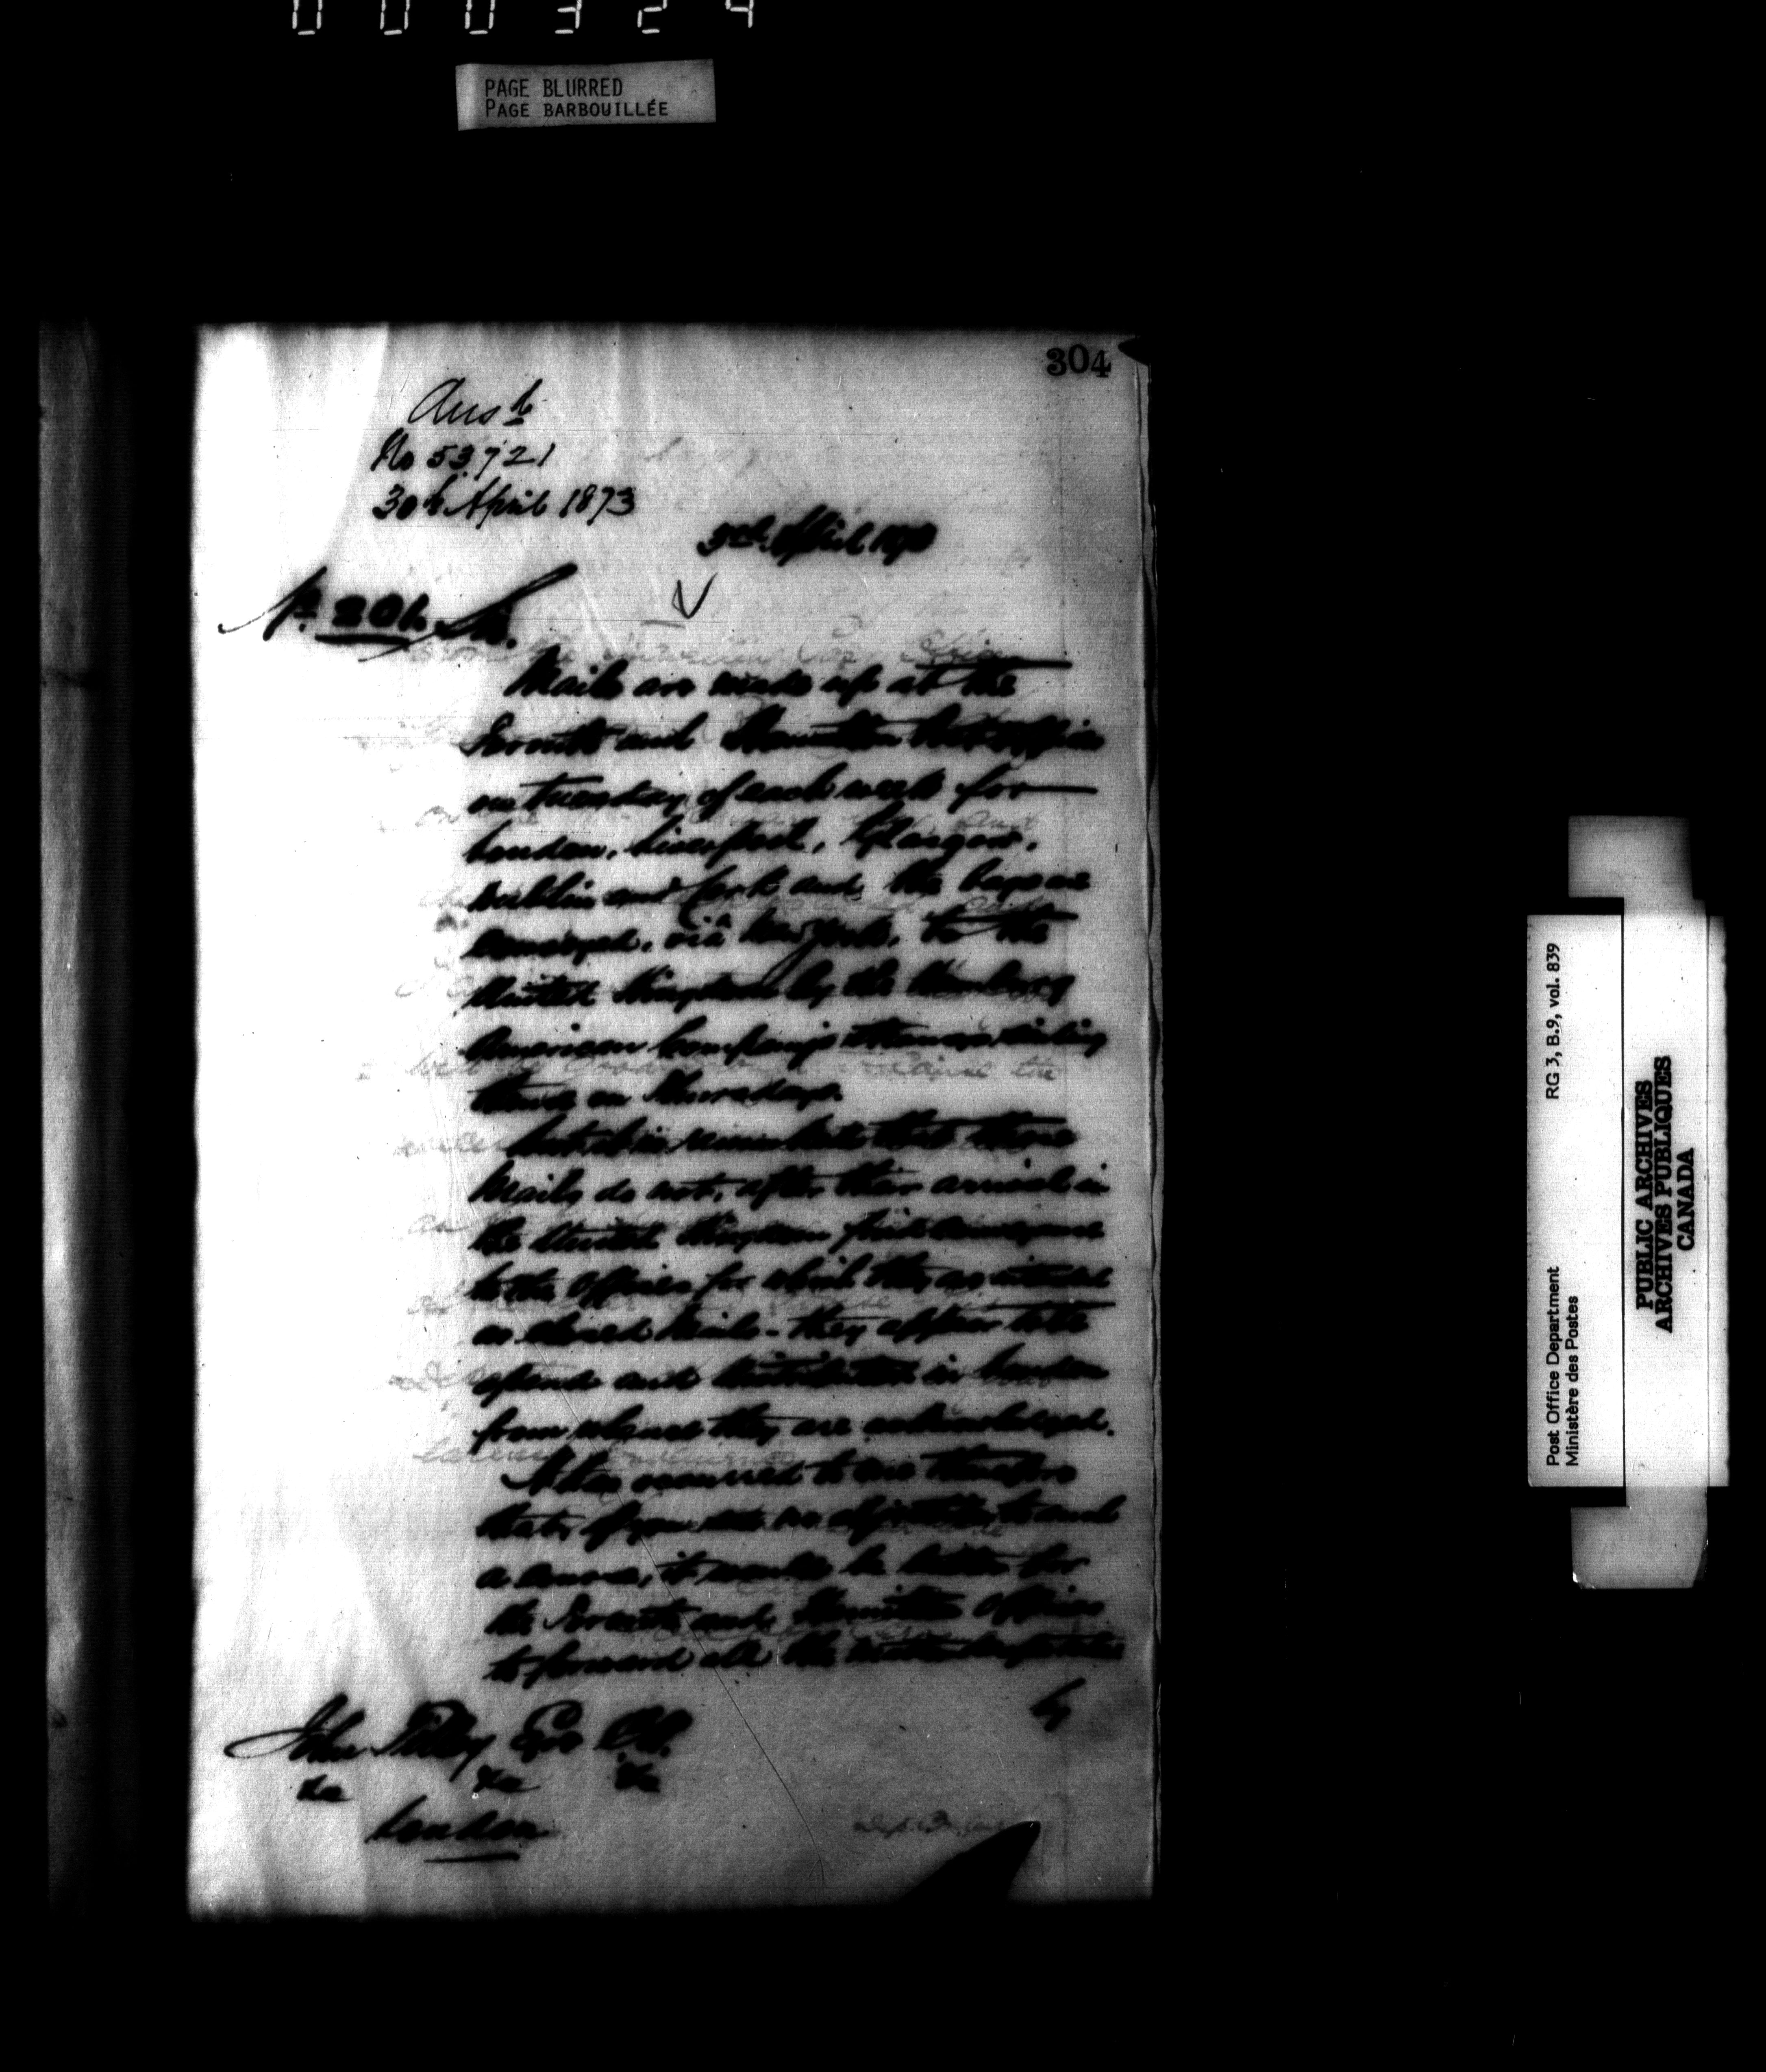 000324
PAGE BLURRED
PAGE BARBOUILLÉE
304
Ansd
No 53721
30th April 1873
3rd April 1873
No. 206 Sir.
Mails are made up at the
Toronto and Hamilton Post Offices
on Tuesday of each week for
London, Liverpool, Glasgow,
Dublin and Cork and the bags are
conveyed, viâ New York, to the
United Kingdom by the Hamburg
American Company's steamers sailing
thence on Thursdays.
but it is that these
Mails do not, after their arrival in
the United Kingdom find conveyance
to the Offices for which they are intended
as closed Mails - they appear to be
opened and distributed in London
from whence they are acknowledged.
It has occurred to me therefore
that, if you see no objection to such
a course, it would be better for
the Toronto and Hamilton Offices
to forward all the
by
John Tilley Esq C.B.
&c &c &c
London
Post Office Department
Ministère des Postes
RG 3, B.9, vol. 839
PUBLIC ARCHIVES
ARCHIVES PUBLIQUES
CANADA